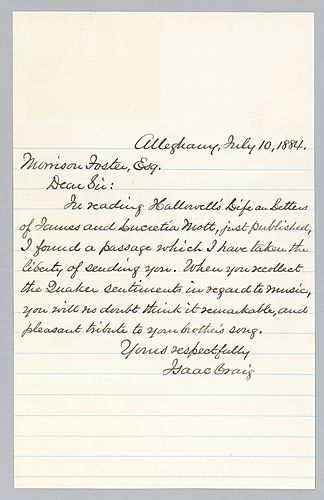 Alleghany, July 10, 1884.
Morrison Foster, Esq.
Dear Sir:
In reading Hallowell's Life an Letters
of James and Lucretia Mott, just published,
I found a passage which I have taken the
liberty of sending you. When you recollect
the Quaker sentiments in regard to music,
you will no doubt think it remarkable, and
pleasant tribute to your brother's song.
Yours respectfully
Isaac Craig